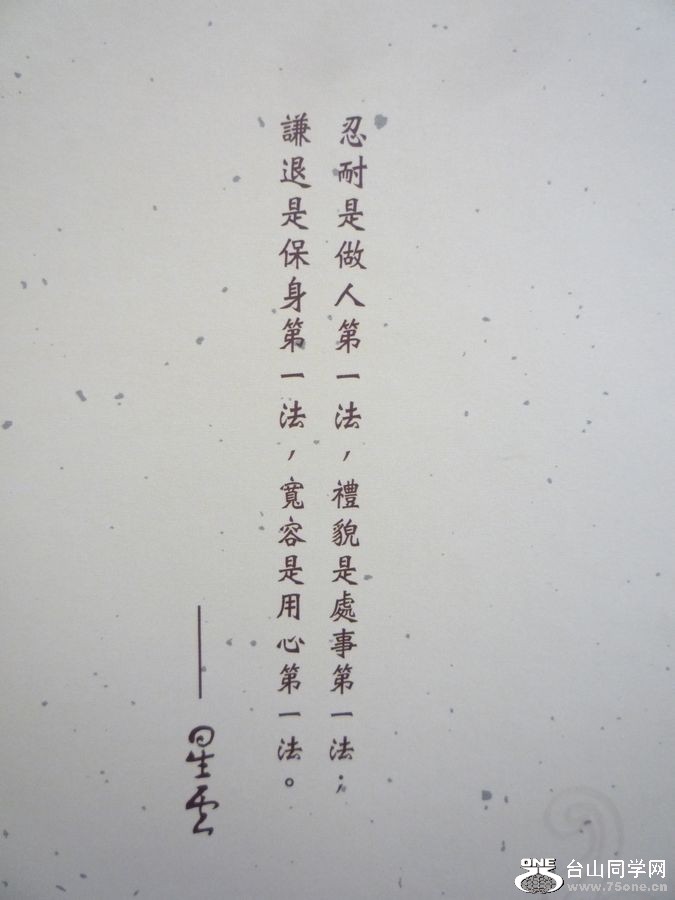 忍耐是做人第一法，禮貌是處事第一法；
謙退是保身第一法，寬容是用心第一法。
——星雲
ONE 台山同学网
www.75one.cn